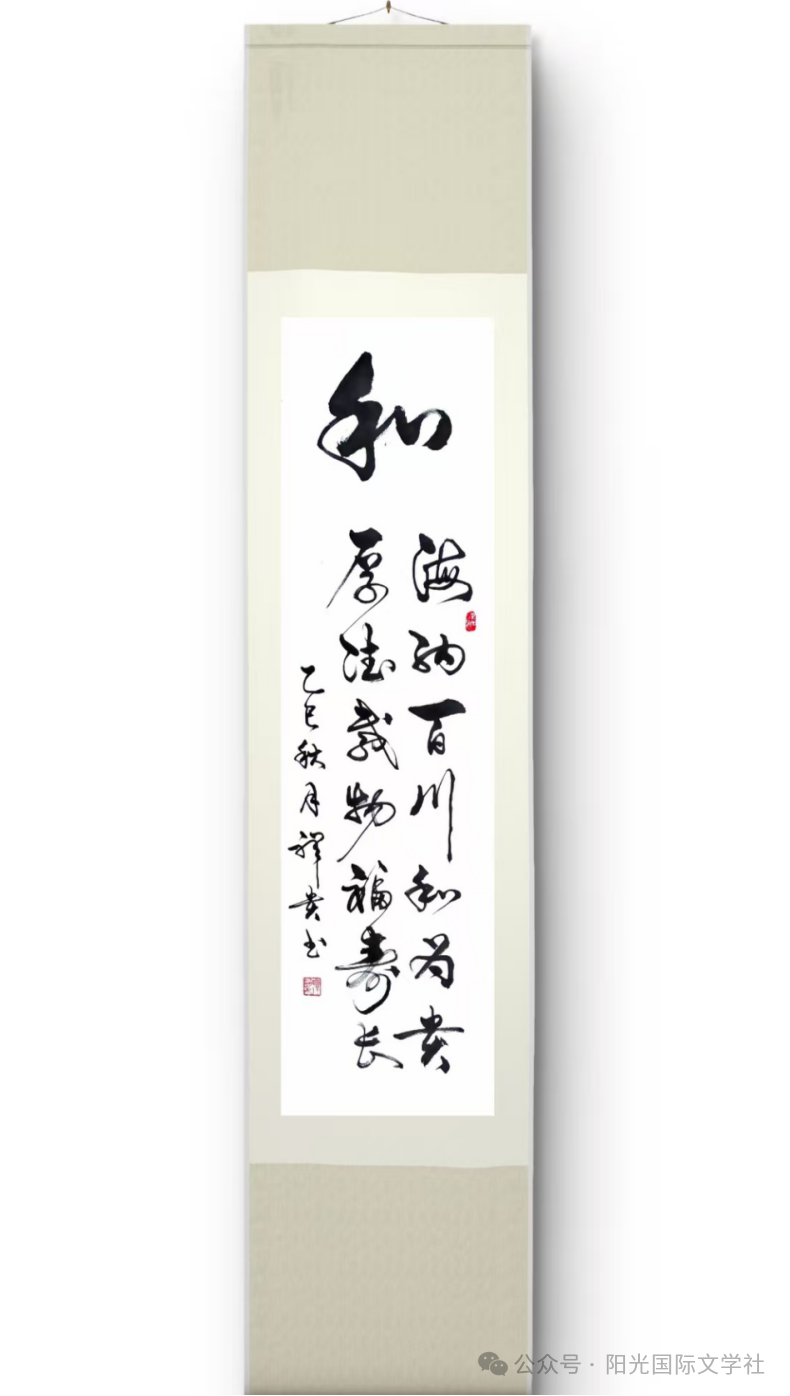 和
海纳百川和为贵
厚德载物福寿长
乙巳秋月祥贵书
公众号 · 阳光国际文学社